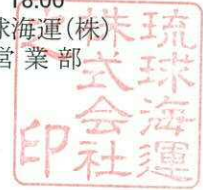 18:00
球海運(株)
営業部
琉球海運
株式会社
印